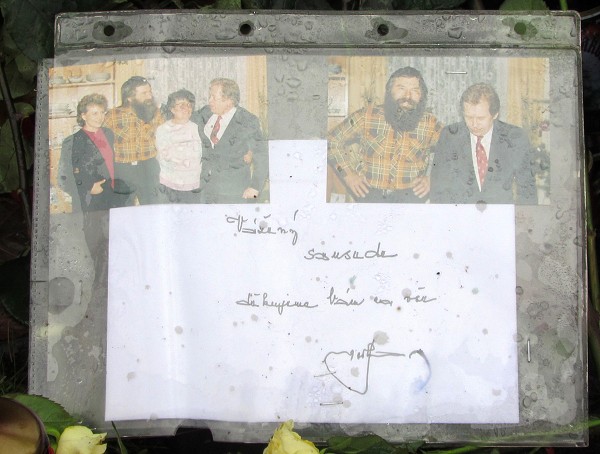 Vážený
sousede
děkujeme Vám za vše